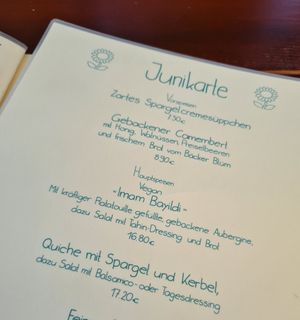 Junikarte
Vorspeisen
Zartes Spargelcremesüppchen
7.50€
Gebackener Camembert
mit Honig, Walnüssen, Preiselbeeren
und frischem Brot vom Bäcker Blum
8.90€
Hauptspeisen
Vegan
-Imam Bayildi-
Mit kräftiger Ratatouille gefüllte, gebackene Aubergine,
dazu Salat mit Tahin-Dressing und Brot
16.80€
Quiche mit Spargel und Kerbel,
dazu Salat mit Balsamico- oder Tagesdressing
17.20€